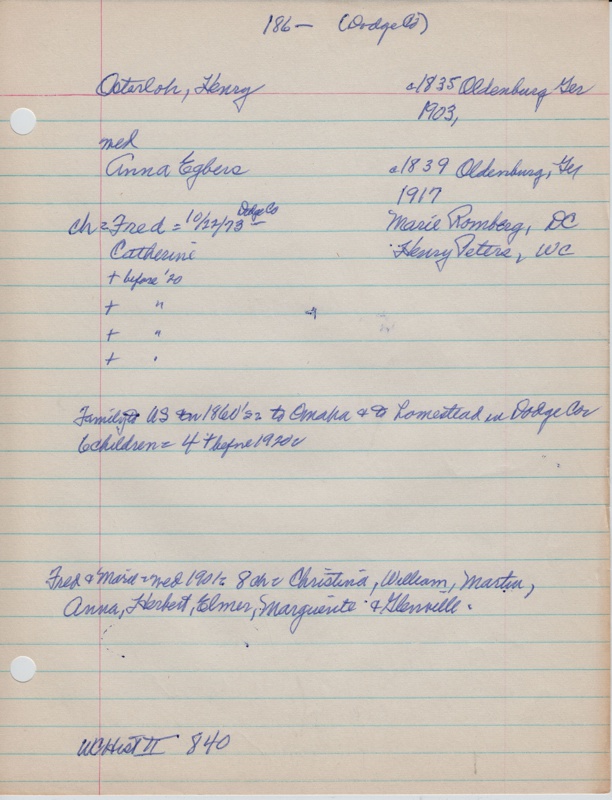 186— (Dodge Co)
Osterloh, Henry c1835 Oldenburg Ger
1903,
med
Anna Egbers c1839 Oldenburg, Ger
1917
ch = Fred = 10/22/73 Dodge Co — Marie Romberg, DC
Catherine Henry Peters, WC
+ before '20
+ "
+ "
+ "
Family to US in 1860's = to Omaha & to homestead in Dodge Co
6 children = 4 + before 1920
Fred & Marie = med 1901 = 8 ch = Christina, William, Martin,
Anna, Herbert, Elmer, Marguerite & Glenville.
WCHist II 840